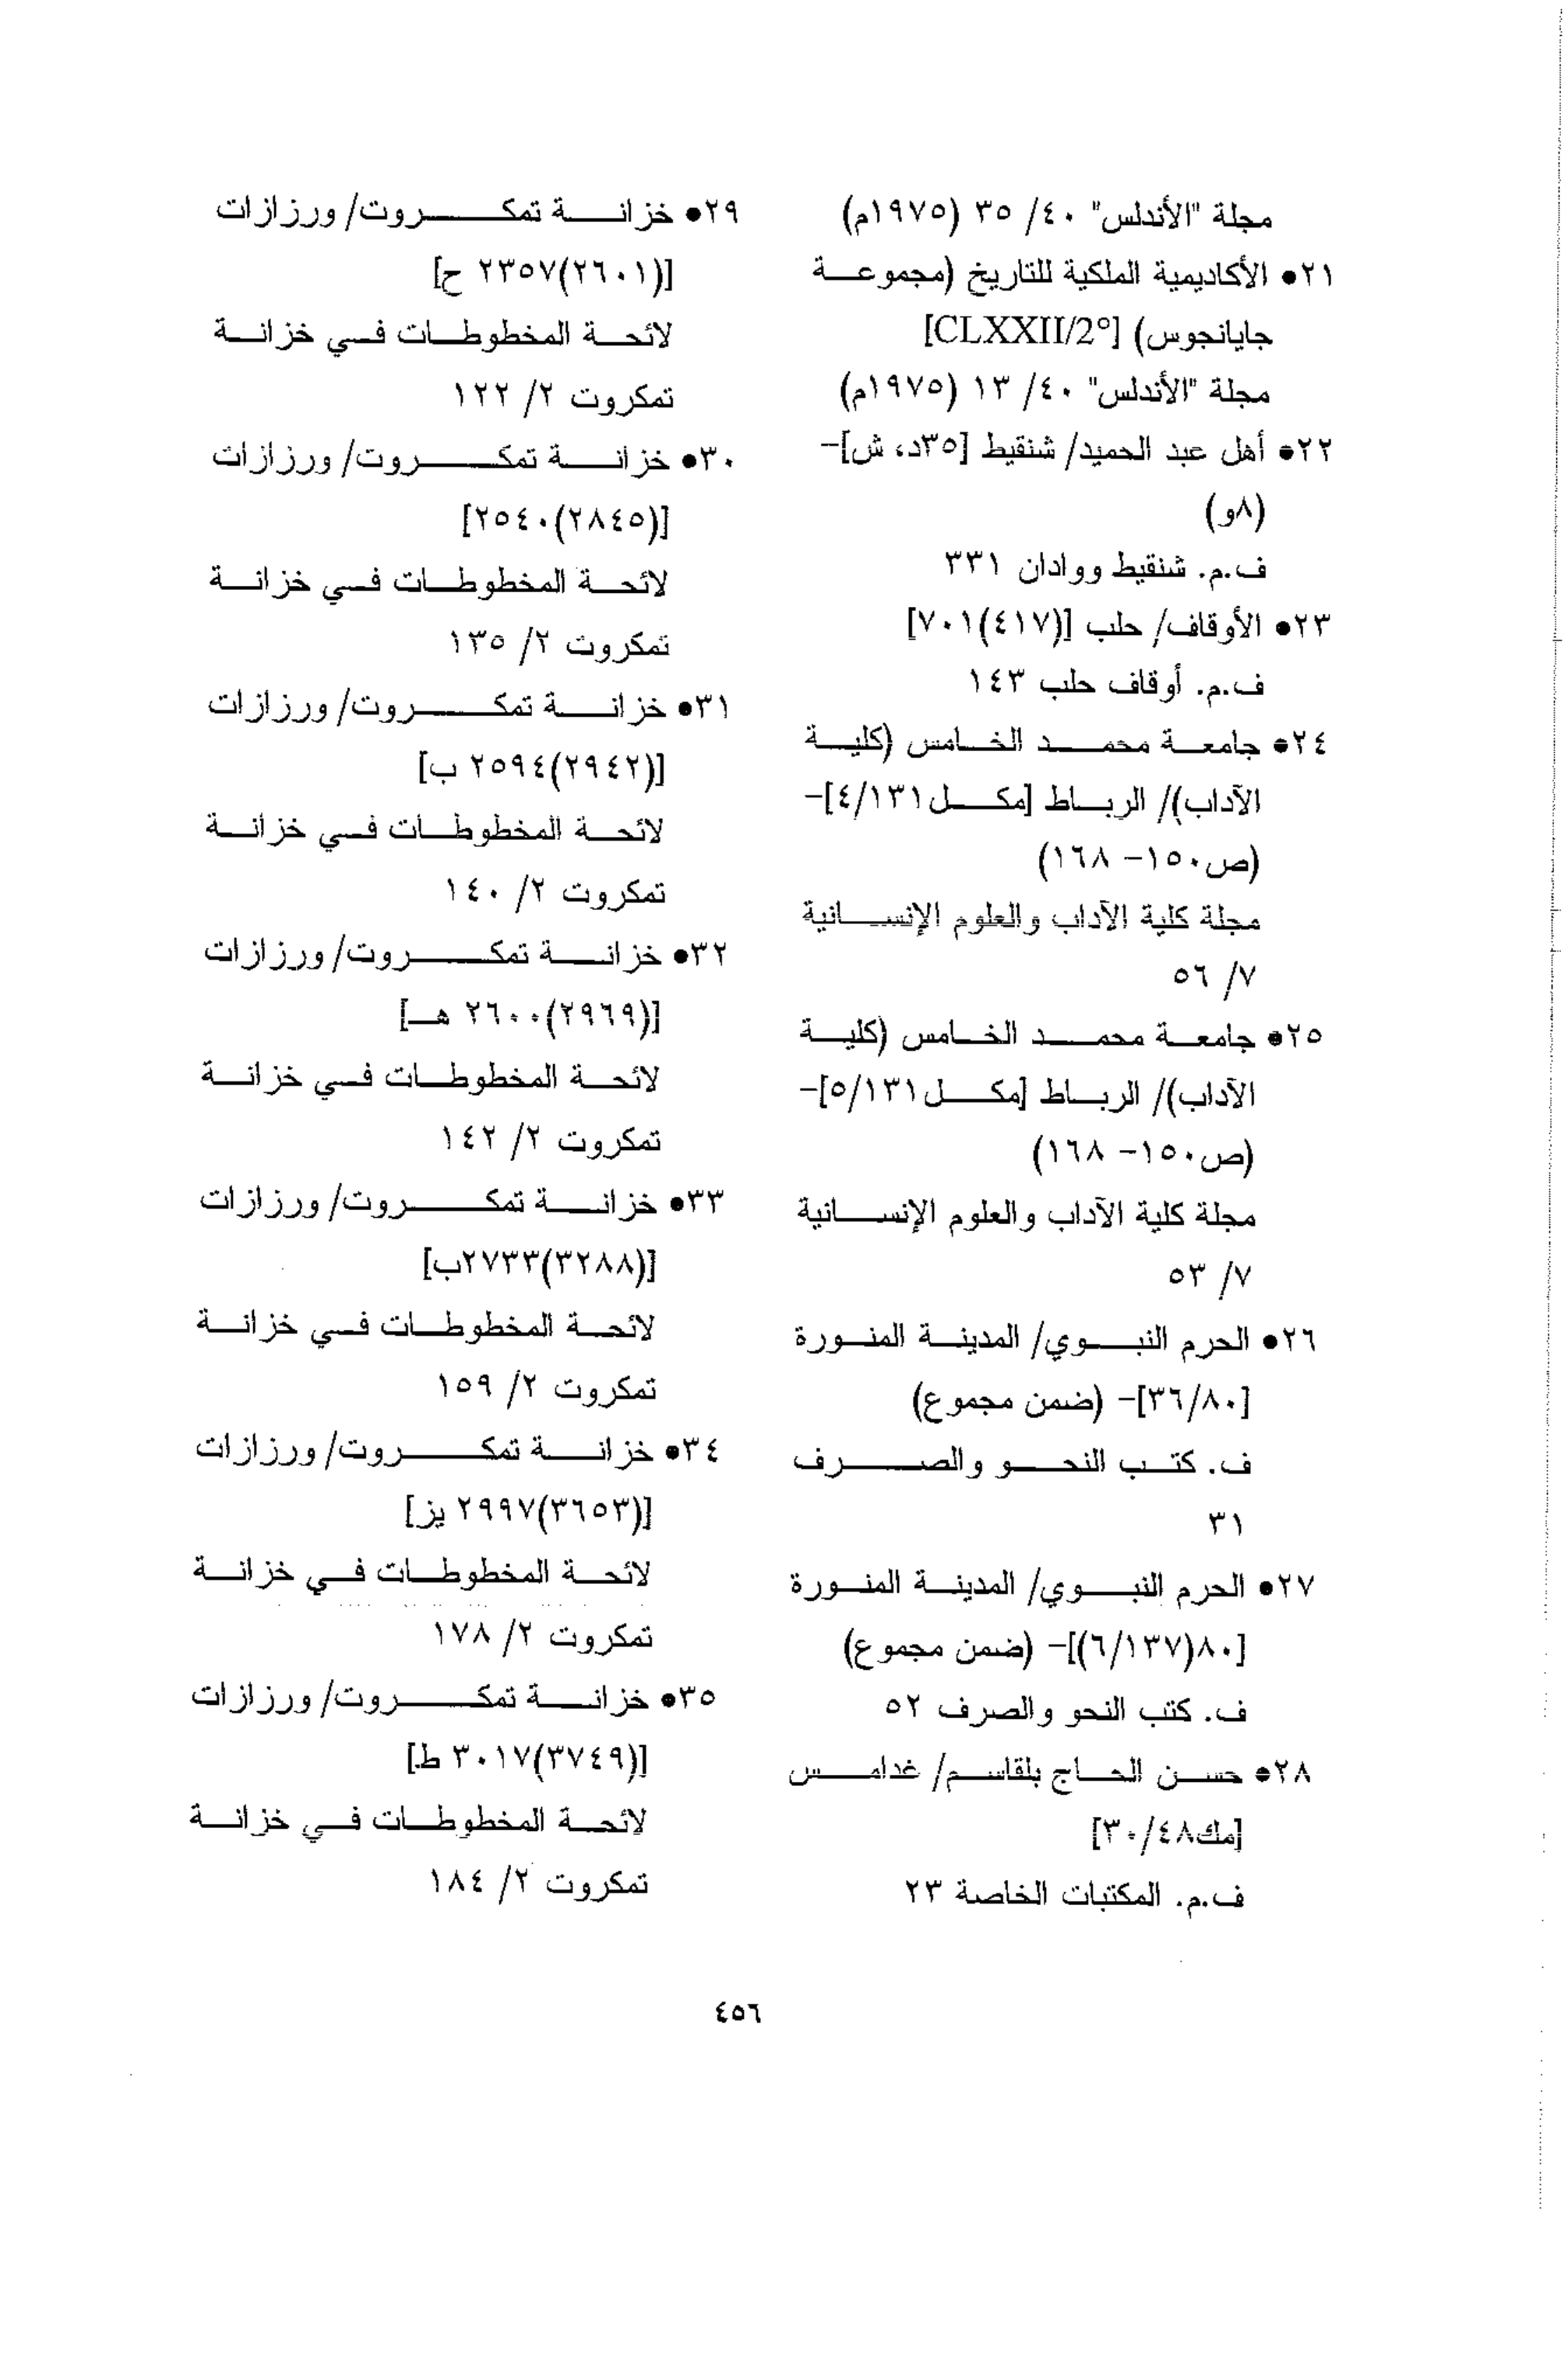 مجلة "الأندلس" ٤٠/ ٣٥ (١٩٧٥م)
٢١• الأكاديمية الملكية للتاريخ (مجموعة
جايانجوس) [CLXXII/2°]
مجلة "الأندلس" ٤٠/ ١٣ (١٩٧٥م)
٢٢• أهل عبد الحميد/ شنقيط [٣٥د، ش]–
(٨و)
ف.م. شنقيط ووادان ٣٣١
٢٣• الأوقاف/ حلب [(٤١٧)٧٠١]
ف.م. أوقاف حلب ١٤٣
٢٤• جامعة محمد الخامس (كلية
الآداب)/ الرباط [مكل١٣١/٤]–
(ص١٥٠– ١٦٨)
مجلة كلية الآداب والعلوم الإنسانية
٧/ ٥٦
٢٥• جامعة محمد الخامس (كلية
الآداب)/ الرباط [مكل١٣١/٥]–
(ص١٥٠– ١٦٨)
مجلة كلية الآداب والعلوم الإنسانية
٧/ ٥٣
٢٦• الحرم النبوي/ المدينة المنورة
[٣٦/٨٠]– (ضمن مجموع)
ف. كتب النحو والصرف
٣١
٢٧• الحرم النبوي/ المدينة المنورة
[٨٠(٦/١٣٧)]– (ضمن مجموع)
ف. كتب النحو والصرف ٥٢
٢٨• حسن الحاج بلقاسم/ غدامس
[مك٣٠/٤٨]
ف.م. المكتبات الخاصة ٢٣
٢٩• خزانة تمكروت/ ورزازات
[(٢٦٠١)٢٣٥٧ ح]
لائحة المخطوطات في خزانة
تمكروت ٢/ ١٢٢
٣٠• خزانة تمكروت/ ورزازات
[(٢٨٤٥)٢٥٤٠]
لائحة المخطوطات في خزانة
تمكروت ٢/ ١٣٥
٣١• خزانة تمكروت/ ورزازات
[(٢٩٤٢)٢٥٩٤ ب]
لائحة المخطوطات في خزانة
تمكروت ٢/ ١٤٠
٣٢• خزانة تمكروت/ ورزازات
[(٢٩٦٩)٢٦٠٠ هـ]
لائحة المخطوطات في خزانة
تمكروت ٢/ ١٤٢
٣٣• خزانة تمكروت/ ورزازات
[(٣٢٨٨)٢٧٣٣ب]
لائحة المخطوطات في خزانة
تمكروت ٢/ ١٥٩
٣٤• خزانة تمكروت/ ورزازات
[(٣٦٥٣)٢٩٩٧ يز]
لائحة المخطوطات في خزانة
تمكروت ٢/ ١٧٨
٣٥• خزانة تمكروت/ ورزازات
[(٣٧٤٩)٣٠١٧ ط]
لائحة المخطوطات في خزانة
تمكروت ٢/ ١٨٤
٤٥٦